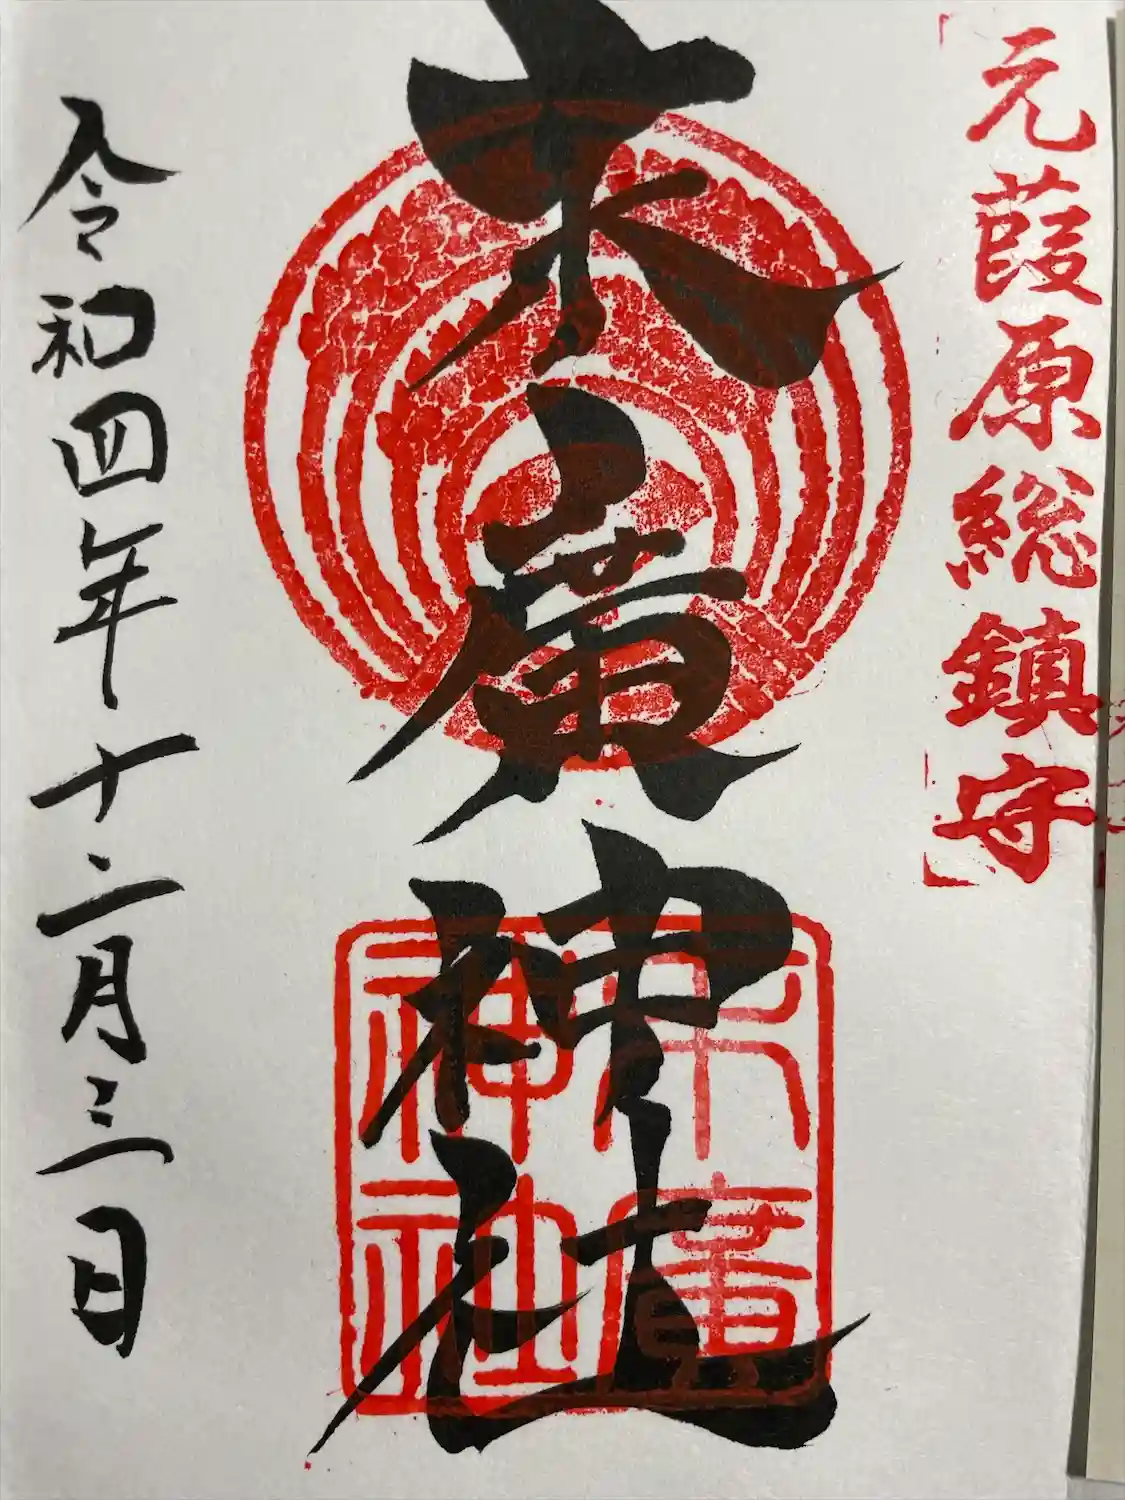 元葭原総鎮守
末廣神社
末廣
神社
令和四年十二月三日